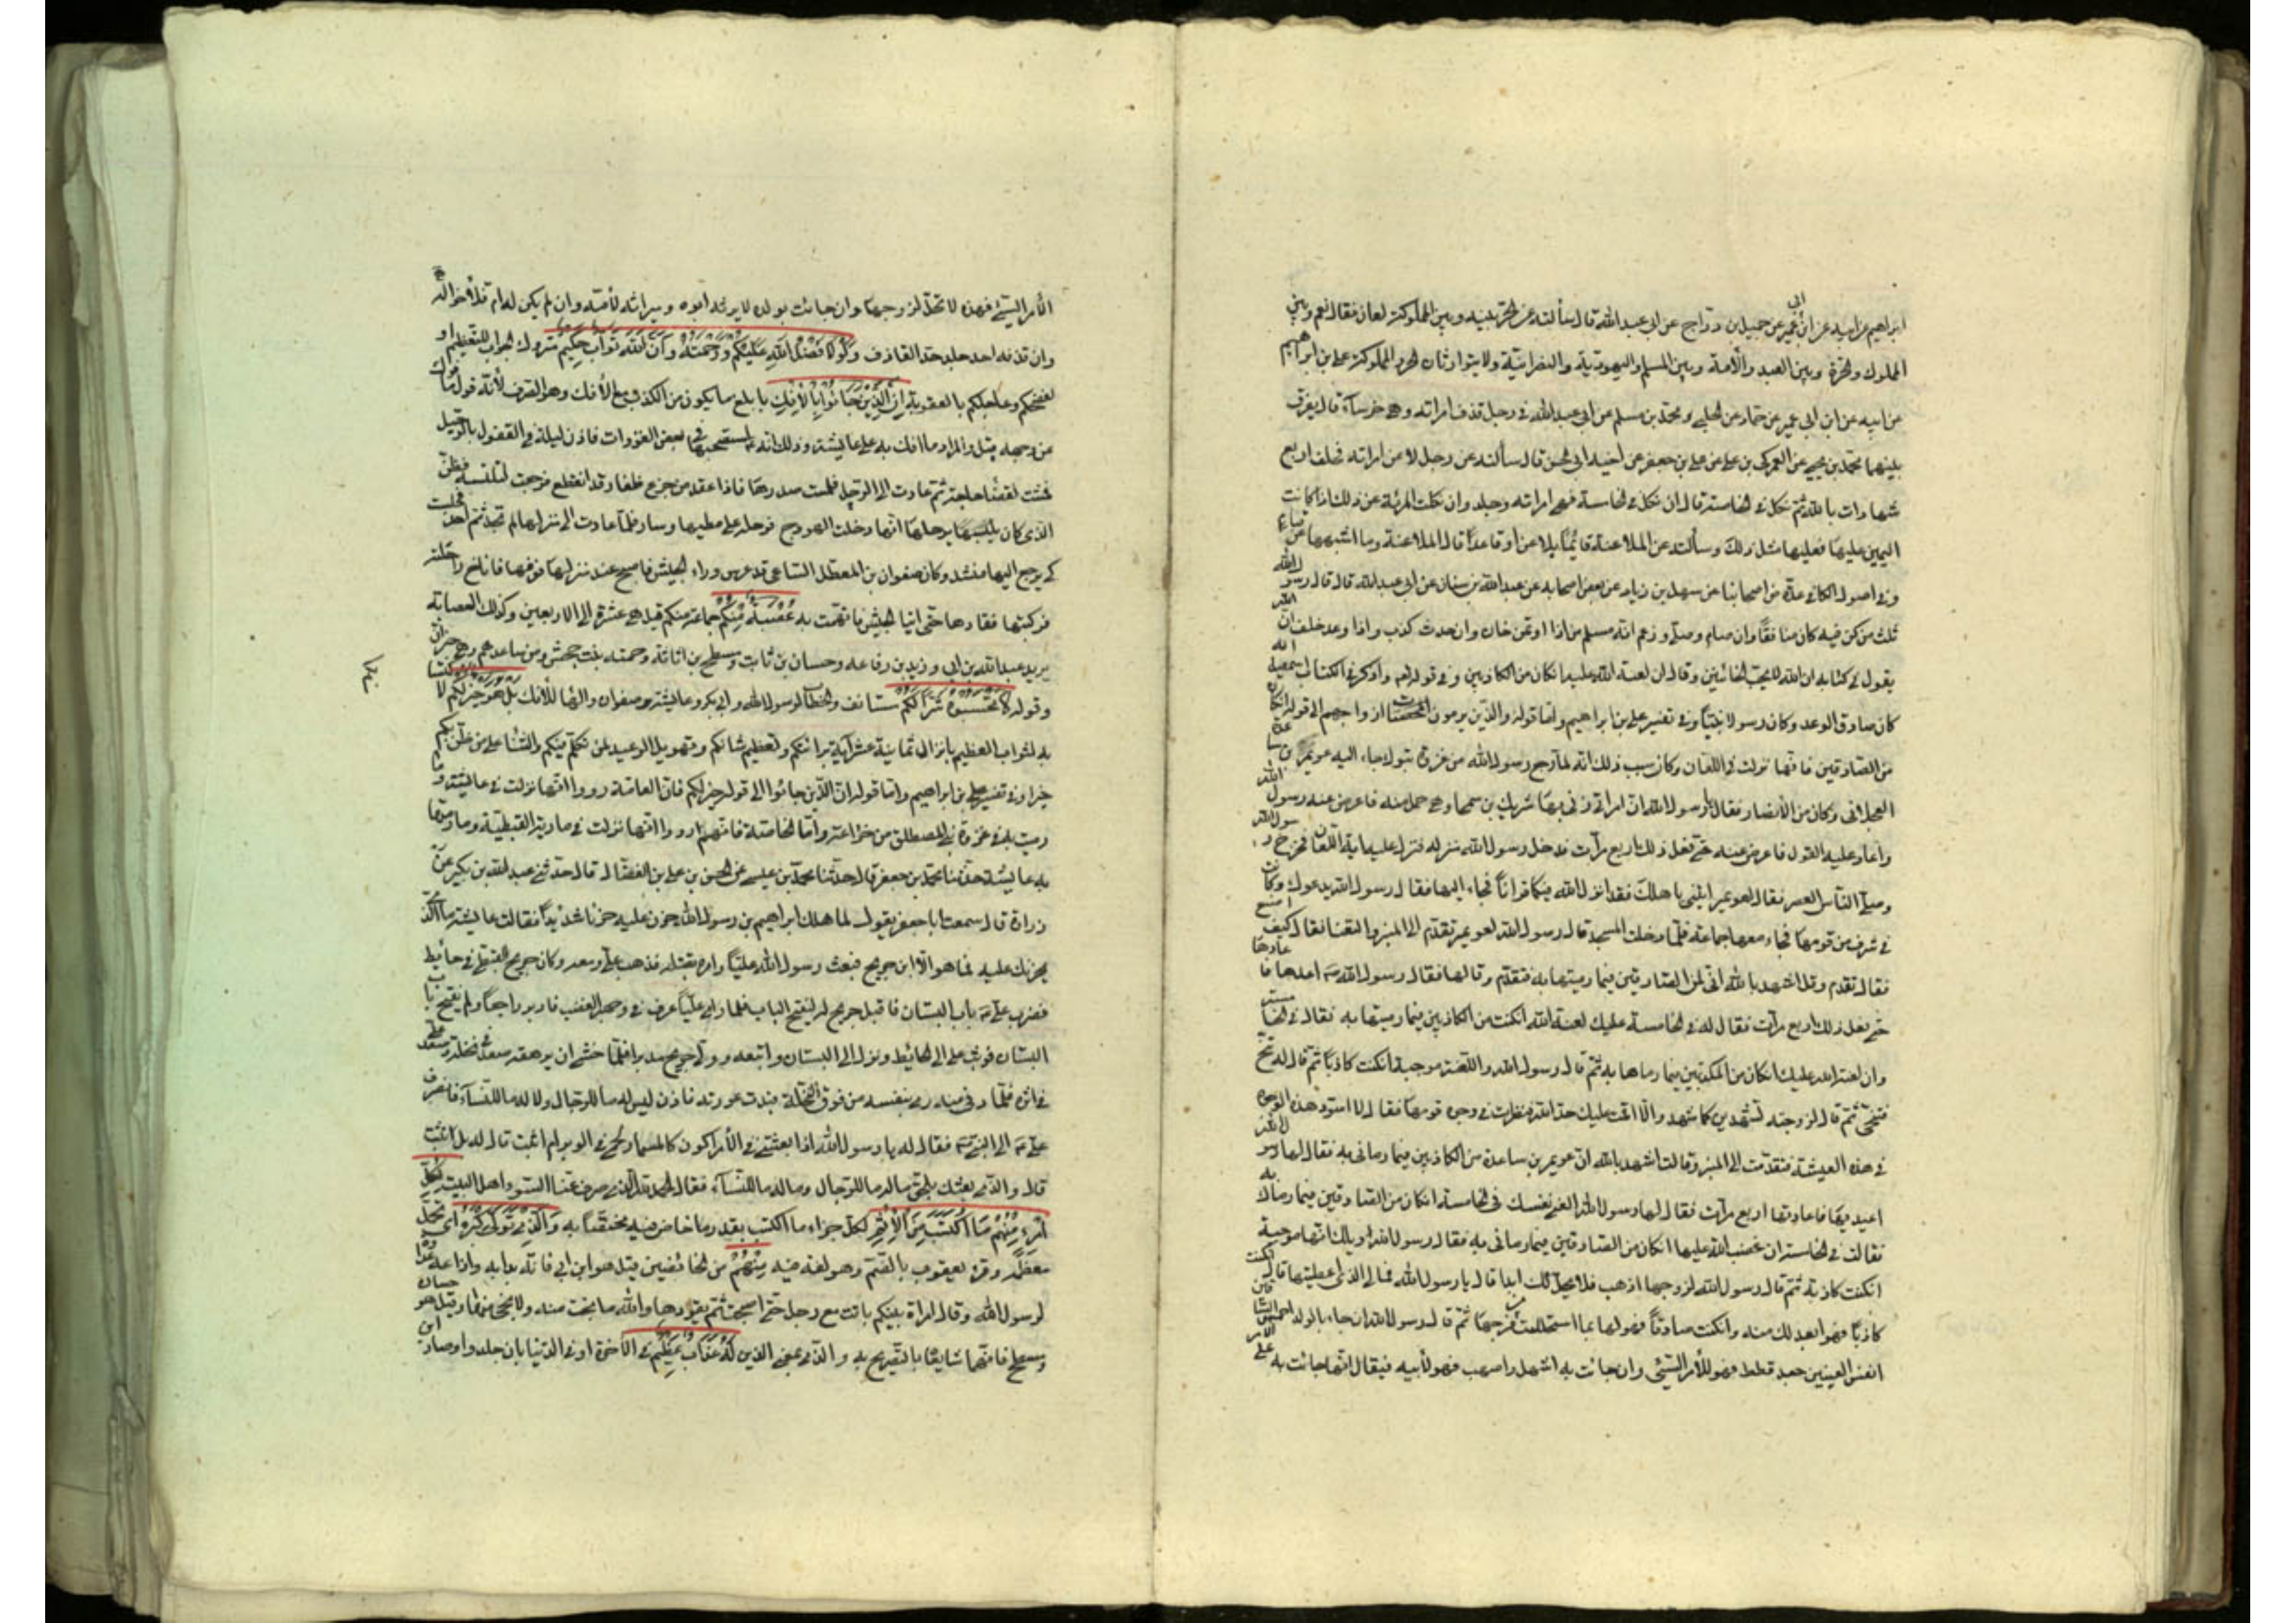 ابراهيم عن ابيه عن ابن ابى عمير عن جميل بن دراج عن ابى عبد الله قال سألته عن الحر بينه وبين المملوكة لعان فقال نعم وبين
المملوك والحرة وبين العبد والامة وبين المسلم واليهودية والنصرانية ولا يتوارثان الحر والمملوكة على بن ابراهيم
عن ابيه عن ابن ابى عمير عن حماد عن الحلبى ومحمد بن مسلم عن ابى عبد الله فى رجل قذف امراته وهى خرسآء قال يفرق
بينهما محمد بن يحيى عن العمركى بن على عن على بن جعفر عن اخيه ابى الحسن قال سألته عن رجل لاعن امراته فحلف اربع
شهادات بالله ثم نكل فى الخامسة قال ان نكل فى الخامسة فهى امراته وجلد وان نكلت المرئة عن ذلك اذا كانت
اليمين عليها فعليها مثل ذلك وسألته عن الملاعنة قائما يلاعن او قاعدا قال الملاعنة وما اشبهها من قيام
وفى اصول الكافى عدة من اصحابنا عن سهل بن زياد عن بعض اصحابه عن عبد الله بن سنان عن ابى عبد الله قال قال رسول الله
ثلث من كن فيه كان منافقا وان صام وصلى وزعم انه مسلم من اذا اوتمن خان وان حدث كذب واذا وعد خلف ان الله
يقول فى كتابه ان الله لا يحب الخائنين وقال ان لعنة الله عليه ان كان من الكاذبين وفى قوله واذكر فى الكتاب اسمعيل انه
كان صادق الوعد وكان رسولا نبيا وفى تفسير على بن ابراهيم واما قوله والذين يرمون المحصنات ازواجهم الى قوله ان كان
من الصادقين فانها نزلت فى اللعان وكان سبب ذلك انه لما رجع رسول الله من غزوة تبوك جاء اليه عويمر بن ساعدة
العجلانى وكان من الانصار فقال يا رسول الله ان امراتى زنى بها شريك بن سمحا وهى حمل منه فاعرض عنه رسول الله
واعاد عليه القول فاعرض عنه حتى فعل ذلك اربع مرات فدخل رسول الله منزله فنزل عليه اية اللعان فخرج رسول الله
وصلى بالناس العصر فقال لعويمر ايتنى باهلك فقد انزل الله فيكما قرانا فجاء اليها فقال رسول الله يدعوك وكانت
فى شرف من قومها فجاء معها جماعة فلما دخلت المسجد قال رسول الله لعويمر تقدم الى المنبر والتعنا فقال كيف اصنع
فقال تقدم وقل اشهد بالله انى لمن الصادقين فيما رميتها به فتقدم وقالها فقال رسول الله اعدها فاعادها
حتى فعل ذلك اربع مرات فقال له فى الخامسة عليك لعنة الله ان كنت من الكاذبين فيما رميتها به فقال فى الخامسة
وان لعنة الله عليك ان كان من الكاذبين فيما رماها به ثم قال رسول الله واللعنة موجبة ان كنت كاذبا ثم قال له تنح
فتنحى ثم قال لزوجته تشهدين كما شهد والا اقمت عليك حد الله فنظرت فى وجوه قومها فقالت لا اسود هذه الوجوه
فى هذه العيشة فتقدمت الى المنبر وقالت اشهد بالله ان عويمر بن ساعدة من الكاذبين فيما رمانى به فقال لها رسول الله
اعيديها فاعادتها اربع مرات فقال لها رسول الله العنى نفسك فى الخامسة ان كان من الصادقين فيما رماك به
فقالت فى الخامسة ان غضب الله عليها ان كان من الصادقين فيما رمانى به فقال رسول الله ويلك انها موجبة
ان كنت كاذبة ثم قال رسول الله لزوجها اذهب فلا يحل لك ابدا قال يا رسول الله فمالى الذى اعطيتها قال ان كنت
كاذبا فهو ابعد لك منه وان كنت صادقا فهو لها بما استحللت من فرجها ثم قال رسول الله ان جاءت بالولد احمش الساقين
انفس العينين جعد قطط فهو للامر السيئ وان جائت به اشهل اصهب فهو لابيه فيقال انها جائت به على الامر
الامر السيئ فهذه لا تحل لزوجها وان جائت بولد لا يرثه ابوه وميراثه لامه وان لم يكن له ام فلاخواله
وان قذفه احد جلد حد القاذف ولولا فضل الله عليكم ورحمته وان الله تواب حكيم متروك الجواب للتعظيم او
لفضحكم وعاجلكم بالعقوبة ان الذين جائوا بالافك بابلغ ما يكون من الكذب مع الافك وهو الصرف لانه قول مأفوك
من وجهه قيل والمراد ما افك به على عايشة وذلك انه استصحبها فى بعض الغزوات فاذن ليلة فى القفول بالرحيل
فمشت لقضاء حاجة ثم عادت الى الرحل فلمست صدرها فاذا عقد من جزع ظفار قد انقطع فرجعت لتلتمسه فظن
الذى كان يرحلها انها دخلت الهودج فرحله على مطيها وسار فلما عادت الى منزلها لم تجد ثم احدا فجلست
كى يرجع اليها منشد وكان صفوان بن المعطل السلمى قد عرس وراء الجيش فاصبح عند منزلها فعرفها فاناخ راحلته
فركبتها فقادها حتى اتيا الجيش فاتهمت به عصبة منكم جماعة منكم قيل هى عشرة الى الاربعين وكذلك العصابة
يريد عبد الله بن ابى وزيد بن رفاعه وحسان بن ثابت ومسطح بن اثاثة وحمنة بنت جحش ومن ساعدهم وهى خبر ان
وقوله لا تحسبوه شرا لكم مستانف والخطاب لرسول الله وابى بكر وعايشة وصفوان والهاء للافك بل هو خير لكم لاكتسابكم
به الثواب العظيم بانزال ثمانية عشر آية فى برائتكم وتعظيم شانكم وتهويل الوعيد لمن تكلم فيكم والثناء على من ظن بكم
خيرا وفى تفسير على بن ابراهيم واما قوله ان الذين جائوا الى قوله خير لكم فان العامة رووا انها نزلت فى عايشة وما
رميت به فى غزوة بنى المصطلق من خزاعة واما الخاصة فانهم رووا انها نزلت فى مارية القبطية وما رمتها
به عايشة حدثنا محمد بن جعفر قال حدثنا محمد بن عيسى عن الحسن بن على بن الفضال قال حدثنى عبد الله بن بكير عن
زرارة قال سمعت ابا جعفر يقول لما هلك ابراهيم بن رسول الله حزن عليه حزنا شديدا فقالت عايشة ما الذى
يحزنك عليه فما هو الا ابن جريح فبعث رسول الله عليا وامره بقتله فذهب على ومعه وكان جريح القبطى فى حائط
فضرب على باب البستان فاقبل جريح ليفتح الباب فلما راى عليا عرف فى وجهه الغضب فادبر راجعا ولم يفتح باب
البستان فوثب على الى الحائط ونزل الى البستان واتبعه وولى جريح مدبرا فلما خشى ان يرهقه صعد فى نخلة وصعد على
فى اثره فلما دنى منه رمى بنفسه من فوق النخلة فبدت عورته فاذن ليس له ما للرجال ولا له ما للنسآء فانصرف
على الى النبى فقال له يا رسول الله اذا بعثتنى فى الامر اكون كالمسمار المحمى فى الوبر ام اثبت قال له بل اثبت
قال والذى بعثك بالحق ما له ما للرجال وما له ما للنسآء فقال الحمد لله الذى صرف عنا السوء اهل البيت لكل
امرء منهم ما اكتسب من الاثم لكل جزاء ما اكتسب بقدر ما خاض فيه مختصا به والذى تولى كبره اى تحمل
معظمه وقرء يعقوب بالضم وهو لغة فيه منهم من الخائضين قيل هو ابن ابى فانه بدا به واذاعه عداوة
لرسول الله وقال امراة نبيكم باتت مع رجل حتى اصبحت ثم يقودها والله ما نجت منه ولا نجى منها وقيل هو حسان
ومسطح فانهما شايعاه بالتصريح به والذى بمعنى الذين له عذاب عظيم فى الآخرة او فى الدنيا بان جلدوا وصار ابن